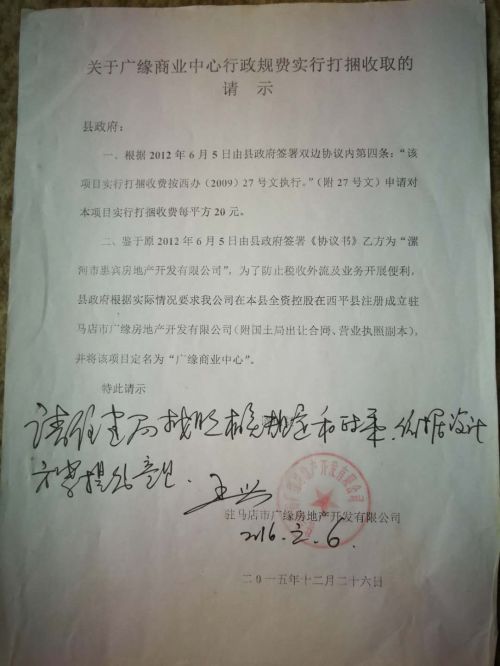 关于广缘商业中心行政规费实行打捆收取的
请 示
县政府：
一、根据 2012 年 6 月 5 日由县政府签署双边协议内第四条：“该
项目实行打捆收费按西办（2009）27 号文执行。”（附 27 号文）申请对
本项目实行打捆收费每平方 20 元。
二、鉴于原 2012 年 6 月 5 日由县政府签署《协议书》乙方为“漯
河市惠宾房地产开发有限公司”，为了防止税收外流及业务开展便利，
县政府根据实际情况要求我公司在本县全资控股在西平县注册成立驻
马店市广缘房地产开发有限公司（附国土局出让合同、营业执照副本），
并将该项目定名为“广缘商业中心”。
特此请示
请住建局按照相关规定和政策，依据设计
方案提出意见．
王兴
驻马店市广缘房地产开发有限公司
2016.2.6
二〇一五年十二月二十六日